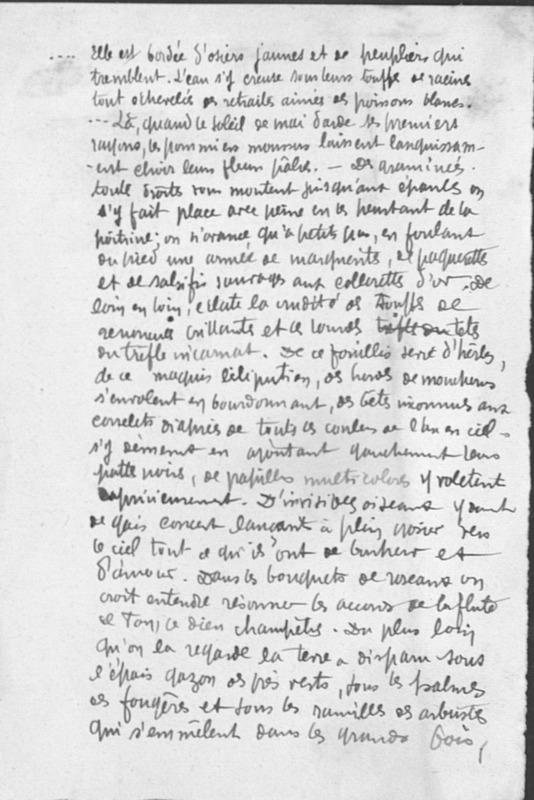 .... Elle est bordée d'osiers jaunes et de peupliers qui
tremblent. L'eau s'y creuse sous leurs touffes de racines
tout échevelés des retraites aimées des poissons blancs.
--- Là, quand le soleil de mai darde ses premiers
rayons, les pommiers moussus laissent languissam-
-ent choir leurs fleurs pâlies. — Des graminées
toutes droites vous montent jusqu'aux épaules on
s'y fait place avec peine en les heurtant de la
poitrine; on n'avance qu'à petits pas, en foulant
du pied une armée de marguerites, de paquerettes
et de salsifis sauvages aux collerettes d'or. De
loin en loin, éclate la crudité des touffes de
renoncules brillantes et les lourdes têtes
du trèfle incarnat. De ce fouillis serré d'herbes,
de ce maquis lilliputien, des hordes de moucherons
s'envolent en bourdonnant, des bêtes inconnues aux
corselets diaprés de toutes les couleurs de l'arc en ciel
s'y démènent en agitant gauchement leurs
pattes noires, des papillons multicolores y volètent
capricieusement. D'invisibles oiseaux y sont
de gais concert lançant à plein gosier vers
le ciel tout ce qu'ils ont de bonheur et
d'amour. Dans les bouquets de roseaux on
croit entendre résonner les accords de la flûte
de Pan, ce dieu champêtre. Du plus loin
qu'on la regarde la terre a disparu sous
l'épais gazon des prés verts, sous les palmes
des fougères et sous les ramilles des arbustes
qui s'emmêlent dans les grands bois,